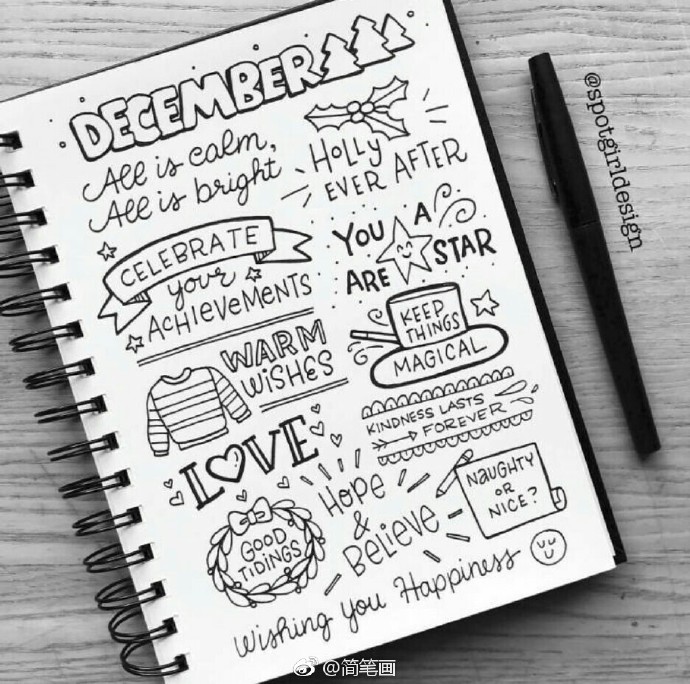 DECEMBER
All is calm,
All is bright
HOLLY
EVER AFTER
CELEBRATE
your
ACHIEVEMENTS
YOU A
ARE STAR
WARM
WISHES
KEEP
THINGS
MAGICAL
KINDNESS LASTS
FOREVER
LOVE
HOPE
&
BELIEVE
NAUGHTY
OR
NICE?
GOOD
TIDINGS
Wishing you Happiness
@spotgirldesign
@简笔画